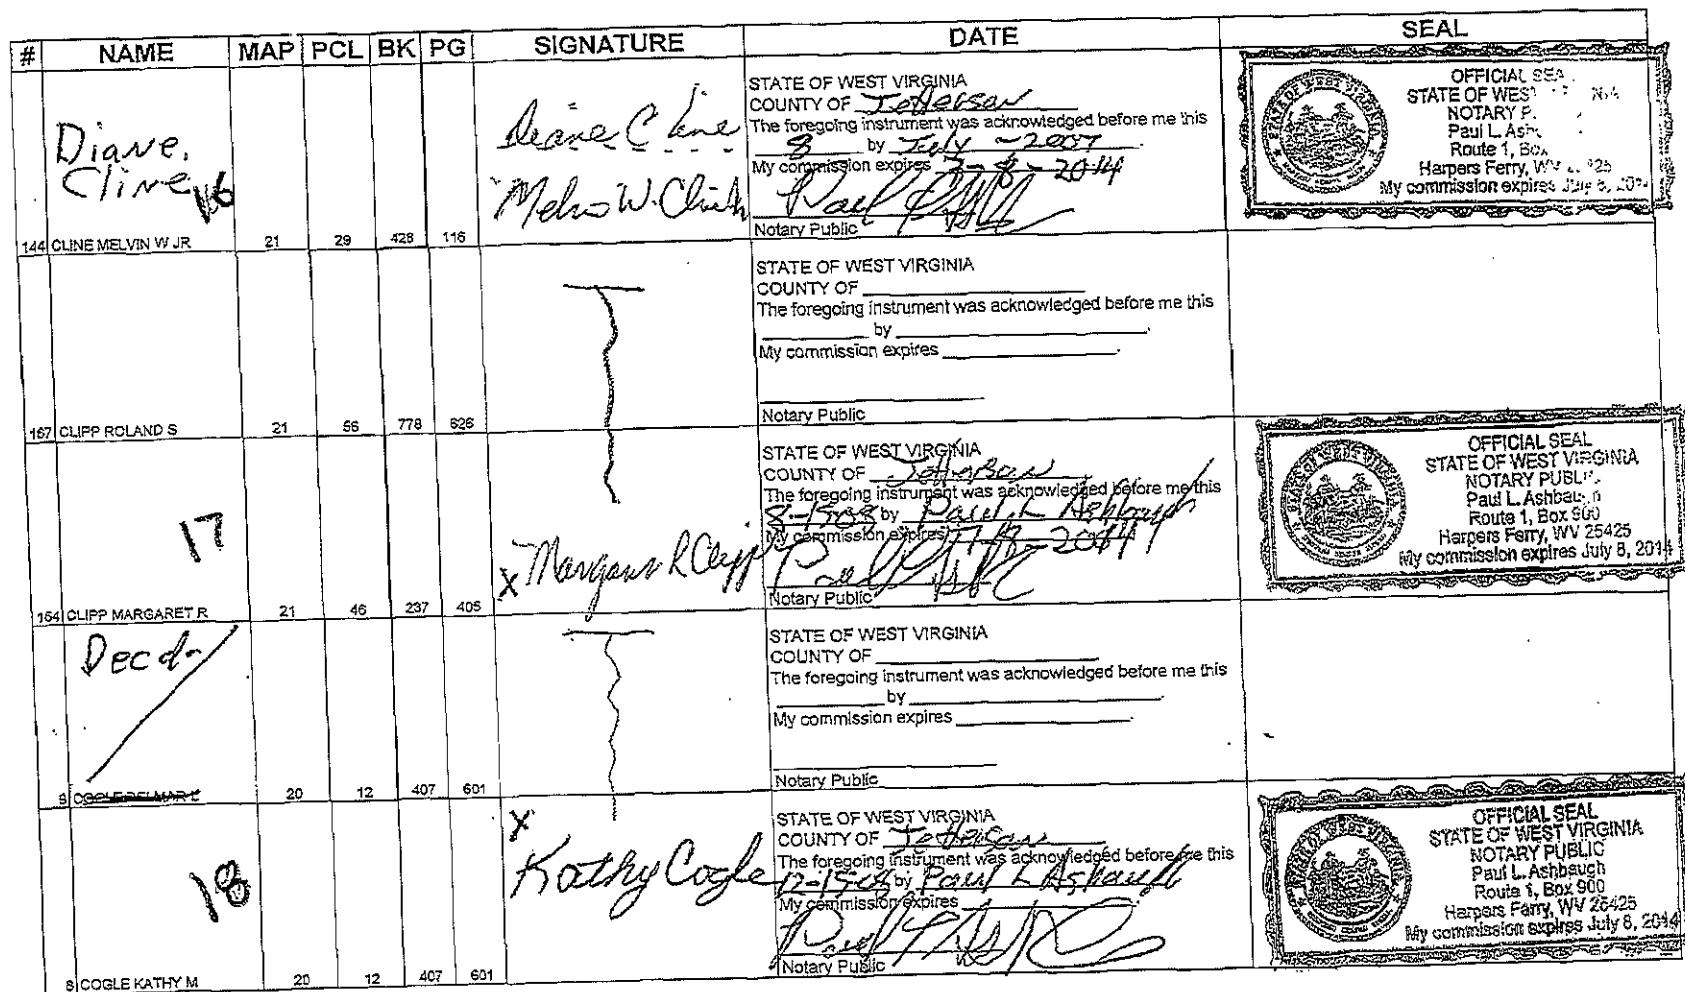 # NAME MAP PCL BK PG SIGNATURE DATE SEAL
Diane.
Cline
16
144 CLINE MELVIN W JR 21 29 428 116
Diane Cline
STATE OF WEST VIRGINIA
COUNTY OF Jefferson
The foregoing instrument was acknowledged before me this
8 by July - 2007
My commission expires 7-8-2014
Notary Public
OFFICIAL SEA
STATE OF WES
NOTARY P
Paul L. Ash
Route 1, Box
Harpers Ferry, WV
My commission expires July 8, 201
167 CLIPP ROLAND S 21 56 778 626
STATE OF WEST VIRGINIA
COUNTY OF
The foregoing instrument was acknowledged before me this
by
My commission expires
Notary Public
17
164 CLIPP MARGARET R 21 46 237 405
X Margaret R Clipp
STATE OF WEST VIRGINIA
COUNTY OF Jefferson
The foregoing instrument was acknowledged before me this
by Paul L Ashbaugh
My commission expires
Notary Public
OFFICIAL SEAL
STATE OF WEST VIRGINIA
NOTARY PUBLI
Paul L. Ashbaugh
Route 1, Box 900
Harpers Ferry, WV 25425
My commission expires July 8, 2014
Decd-
8 COGLE DELMAR L 20 12 407 601
STATE OF WEST VIRGINIA
COUNTY OF
The foregoing instrument was acknowledged before me this
by
My commission expires
Notary Public
18
8 COGLE KATHY M 20 12 407 601
X
Kathy Cogle
STATE OF WEST VIRGINIA
COUNTY OF Jefferson
The foregoing instrument was acknowledged before me this
by Paul L Ashbaugh
My commission expires
Notary Public
OFFICIAL SEAL
STATE OF WEST VIRGINIA
NOTARY PUBLIC
Paul L. Ashbaugh
Route 1, Box 900
Harpers Ferry, WV 25425
My commission expires July 8, 2014